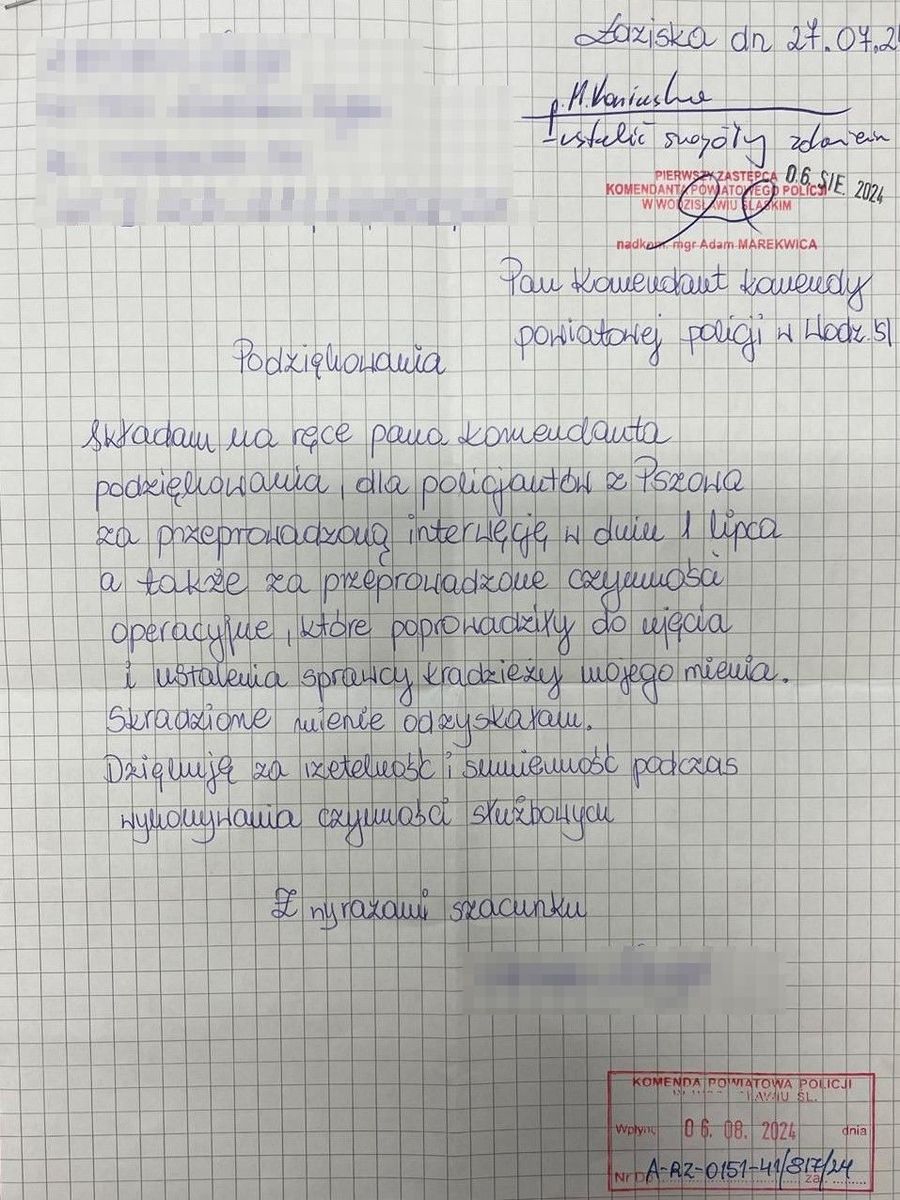 Łaziska dn 27.07.2
p. M.
-ustalić
PIERWSZY ZASTĘPCA
06. SIE. 2024
KOMENDANTA POWIATOWEGO POLICJI
W WODZISŁAWIU ŚLĄSKIM
nadkom. mgr Adam MAREKWICA
Pan Komendant komendy
powiatowej policji w Wodz.Śl
Podziękowania
Składam na ręce pana komendanta
podziękowania, dla policjantów z Pszowa
za przeprowadzoną interwęcję w dniu 1 lipca
a także za przeprowadzone czynności
operacyjne, które poprowadziły do ujęcia
i ustalenia sprawcy kradzieży mojego mienia.
Skradzione mienie odzyskałam.
Dziękuję za rzetelność i sumienność podczas
wykonywania czynności służbowych
Z wyrazami szacunku
KOMENDA POWIATOWA POLICJI
ŚL.
Wpłynę 06. 08. 2024 dnia
Nr D A-RZ-0151-41/817/24 zał.